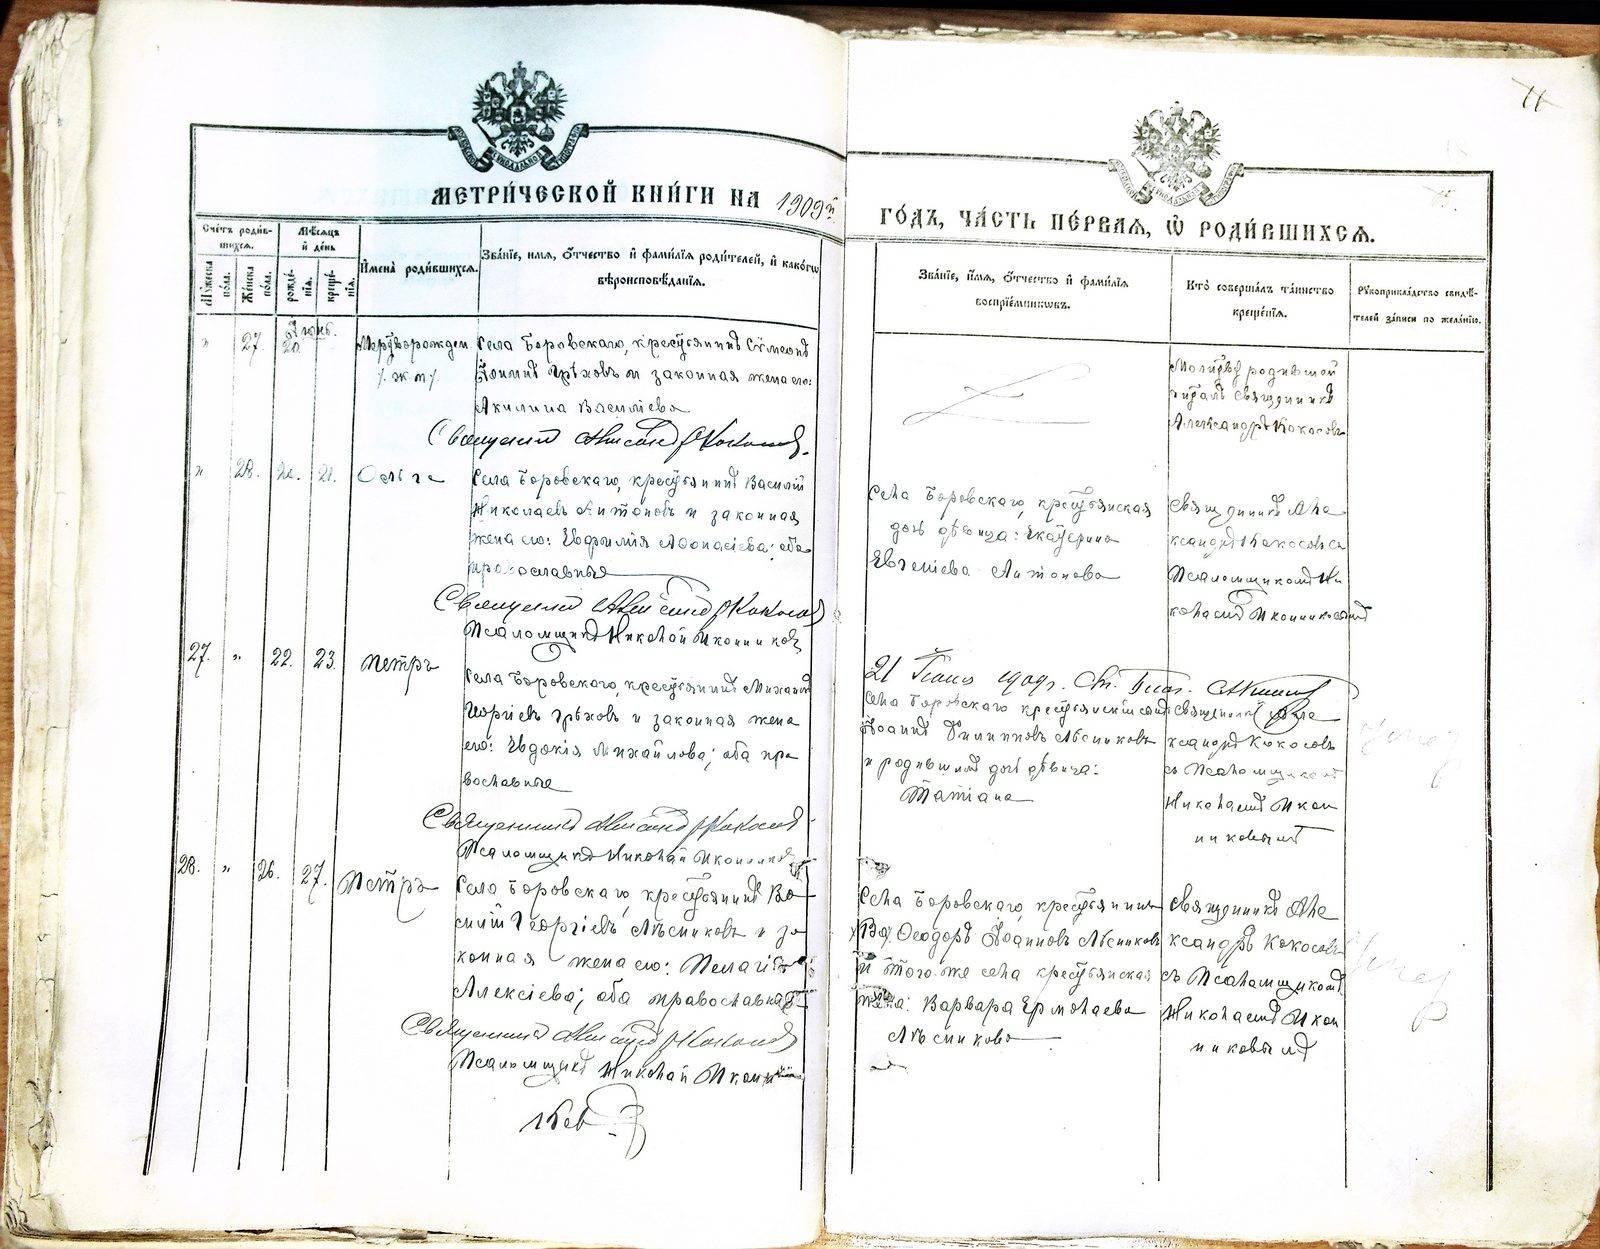 11
МЕТРИ́ЧЕСКОЙ КНИ́ГИ НА 1909й
ГО́ДЪ, ЧА́СТЬ ПЕ́РВАЯ, Ѡ РОДИ́ВШИХСЯ.
Сче́тъ роди́в-
шихся.
Мѣ́сяцъ
и҆ де́нь
Му́жеска
по́ла.
Же́нска
по́ла.
рожде́-
нїя.
креще́-
нїя.
И҆мена̀ роди́вшихся.
Зва́нїе, и҆мя, ѻ҆́тчество и҆ фами́лїя роди́телей, и҆ како́гѡ
вѣроисповѣ́данїя.
Зва́нїе, и҆́мя, ѻ҆́тчество и҆ фами́лїя
воспрїе́мниковъ.
Кто̀ соверша́лъ та́инство
креще́нїя.
Рꙋкоприкла́дство свидѣ́-
телей за́писи по жела́нїю.
" 27. Іюнь. 20. Мертворожден
/ж. п/
Села Боровскаго, крестьянинъ Сѵмеонъ
Іоиннъ Грѣховъ и законная жена его:
Акилина Василіева
Священникъ Александръ Кокосовъ.
Молитву родившой
читалъ Священникъ
Александръ Кокосовъ
" 28. 20. 21. Ольга
Села Боровскаго, крестьянинъ Василій
Николаевъ Антоновъ и законная
жена его: Евфимія Аѳонасіева; оба
православные
Священникъ Александръ Кокосовъ
Псаломщикъ Николай Иконниковъ
Села Боровскаго, крестьянская
дочь дѣвица: Екатерина
Евгеніева Антонова
Священникъ Але
ксандръ Кокосовъ съ
Псаломщикомъ Ни
колаемъ Иконниковымъ
27. " 22. 23. Петръ
Села Боровскаго, крестьянинъ Михаилъ
Георгіевъ Грѣховъ и законная жена
его: Евдокія Михайлова; оба пра
вославные
Священникъ Александръ Кокосовъ
Псаломщикъ Николай Иконниковъ
21 Іюня 1909г.
Села Боровскаго крестьянскій сынъ
Іоаннъ Филиповъ Лѣсниковъ
и родившихъ дочь дѣвица:
Татіана
Священникъ Але
ксандръ Кокосовъ
съ Псаломщикомъ
Николаемъ Икон
никовымъ
28. " 26. 27. Петръ
Села Боровскаго, крестьянинъ Ва
силій Георгіевъ Лѣсниковъ и за
конная жена его: Пелагія
Алексіева; оба православные
Священникъ Александръ Кокосовъ
Псаломщикъ Николай Икон
Села Боровскаго, крестьянинъ
Ѳеодоръ Іоанновъ Лѣсниковъ
и того же села крестьянская
жена: Варвара Ермолаева
Лѣсникова
Священникъ Але
ксандръ Кокосовъ
съ Псаломщикомъ
Николаемъ Икон
никовымъ